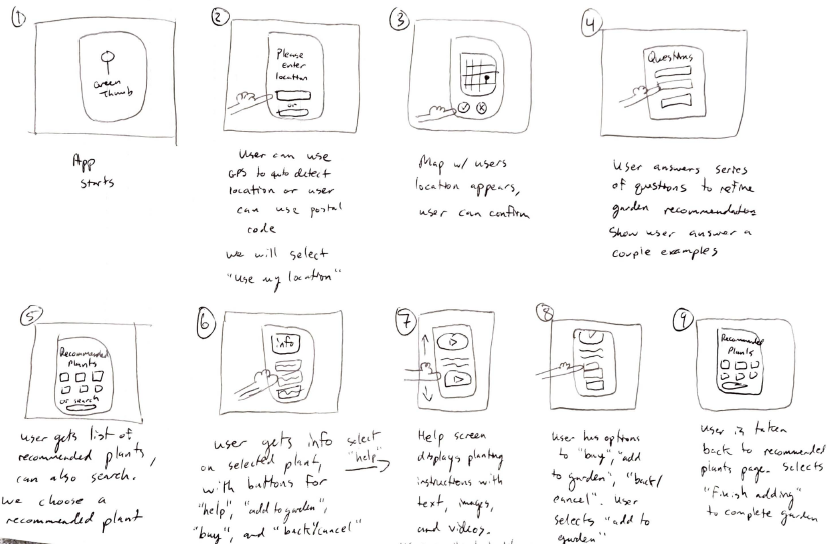 1
Green
Thumb
App
starts
2
Please
enter
location
or
User can use
GPS to auto detect
location or user
can use postal
code
we will select
"Use my location"
3
Map w/ users
location appears,
user can confirm
4
Questions
User answers series
of questions to refine
garden recommendations
Show user answer a
couple examples
5
Recommended
Plants
or search
user gets list of
recommended plants,
can also search.
we choose a
recommended plant
6
info
user gets info
on selected plant,
with buttons for
"help", "add to garden",
"buy", and "back/cancel"
select
"help"
7
Help screen
displays planting
instructions with
text, images,
and videos.
8
User has options
to "buy", "add
to garden", "back/
cancel". User
selects "add to
garden"
9
Recommended
Plants
User is taken
back to recommended
plants page. Selects
"Finish adding"
to complete garden